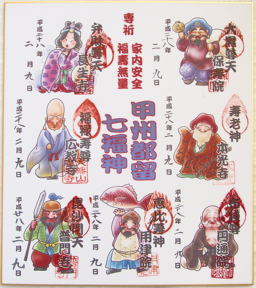 専祈
家内安全
福寿無量
甲州都留
七福神
大黒天
保寿院
平成二十八年
二月九日
弁財天
長生寺
平成二十八年
二月九日
寿老神
平成二十八年
二月九日
福禄寿尊
広教寺
平成二十八年
二月九日
円通院
平成廿八年
二月九日
恵比寿神
用津院
平成二十八年
二月九日
毘沙門天
普門寺
平成廿八年
二月九日